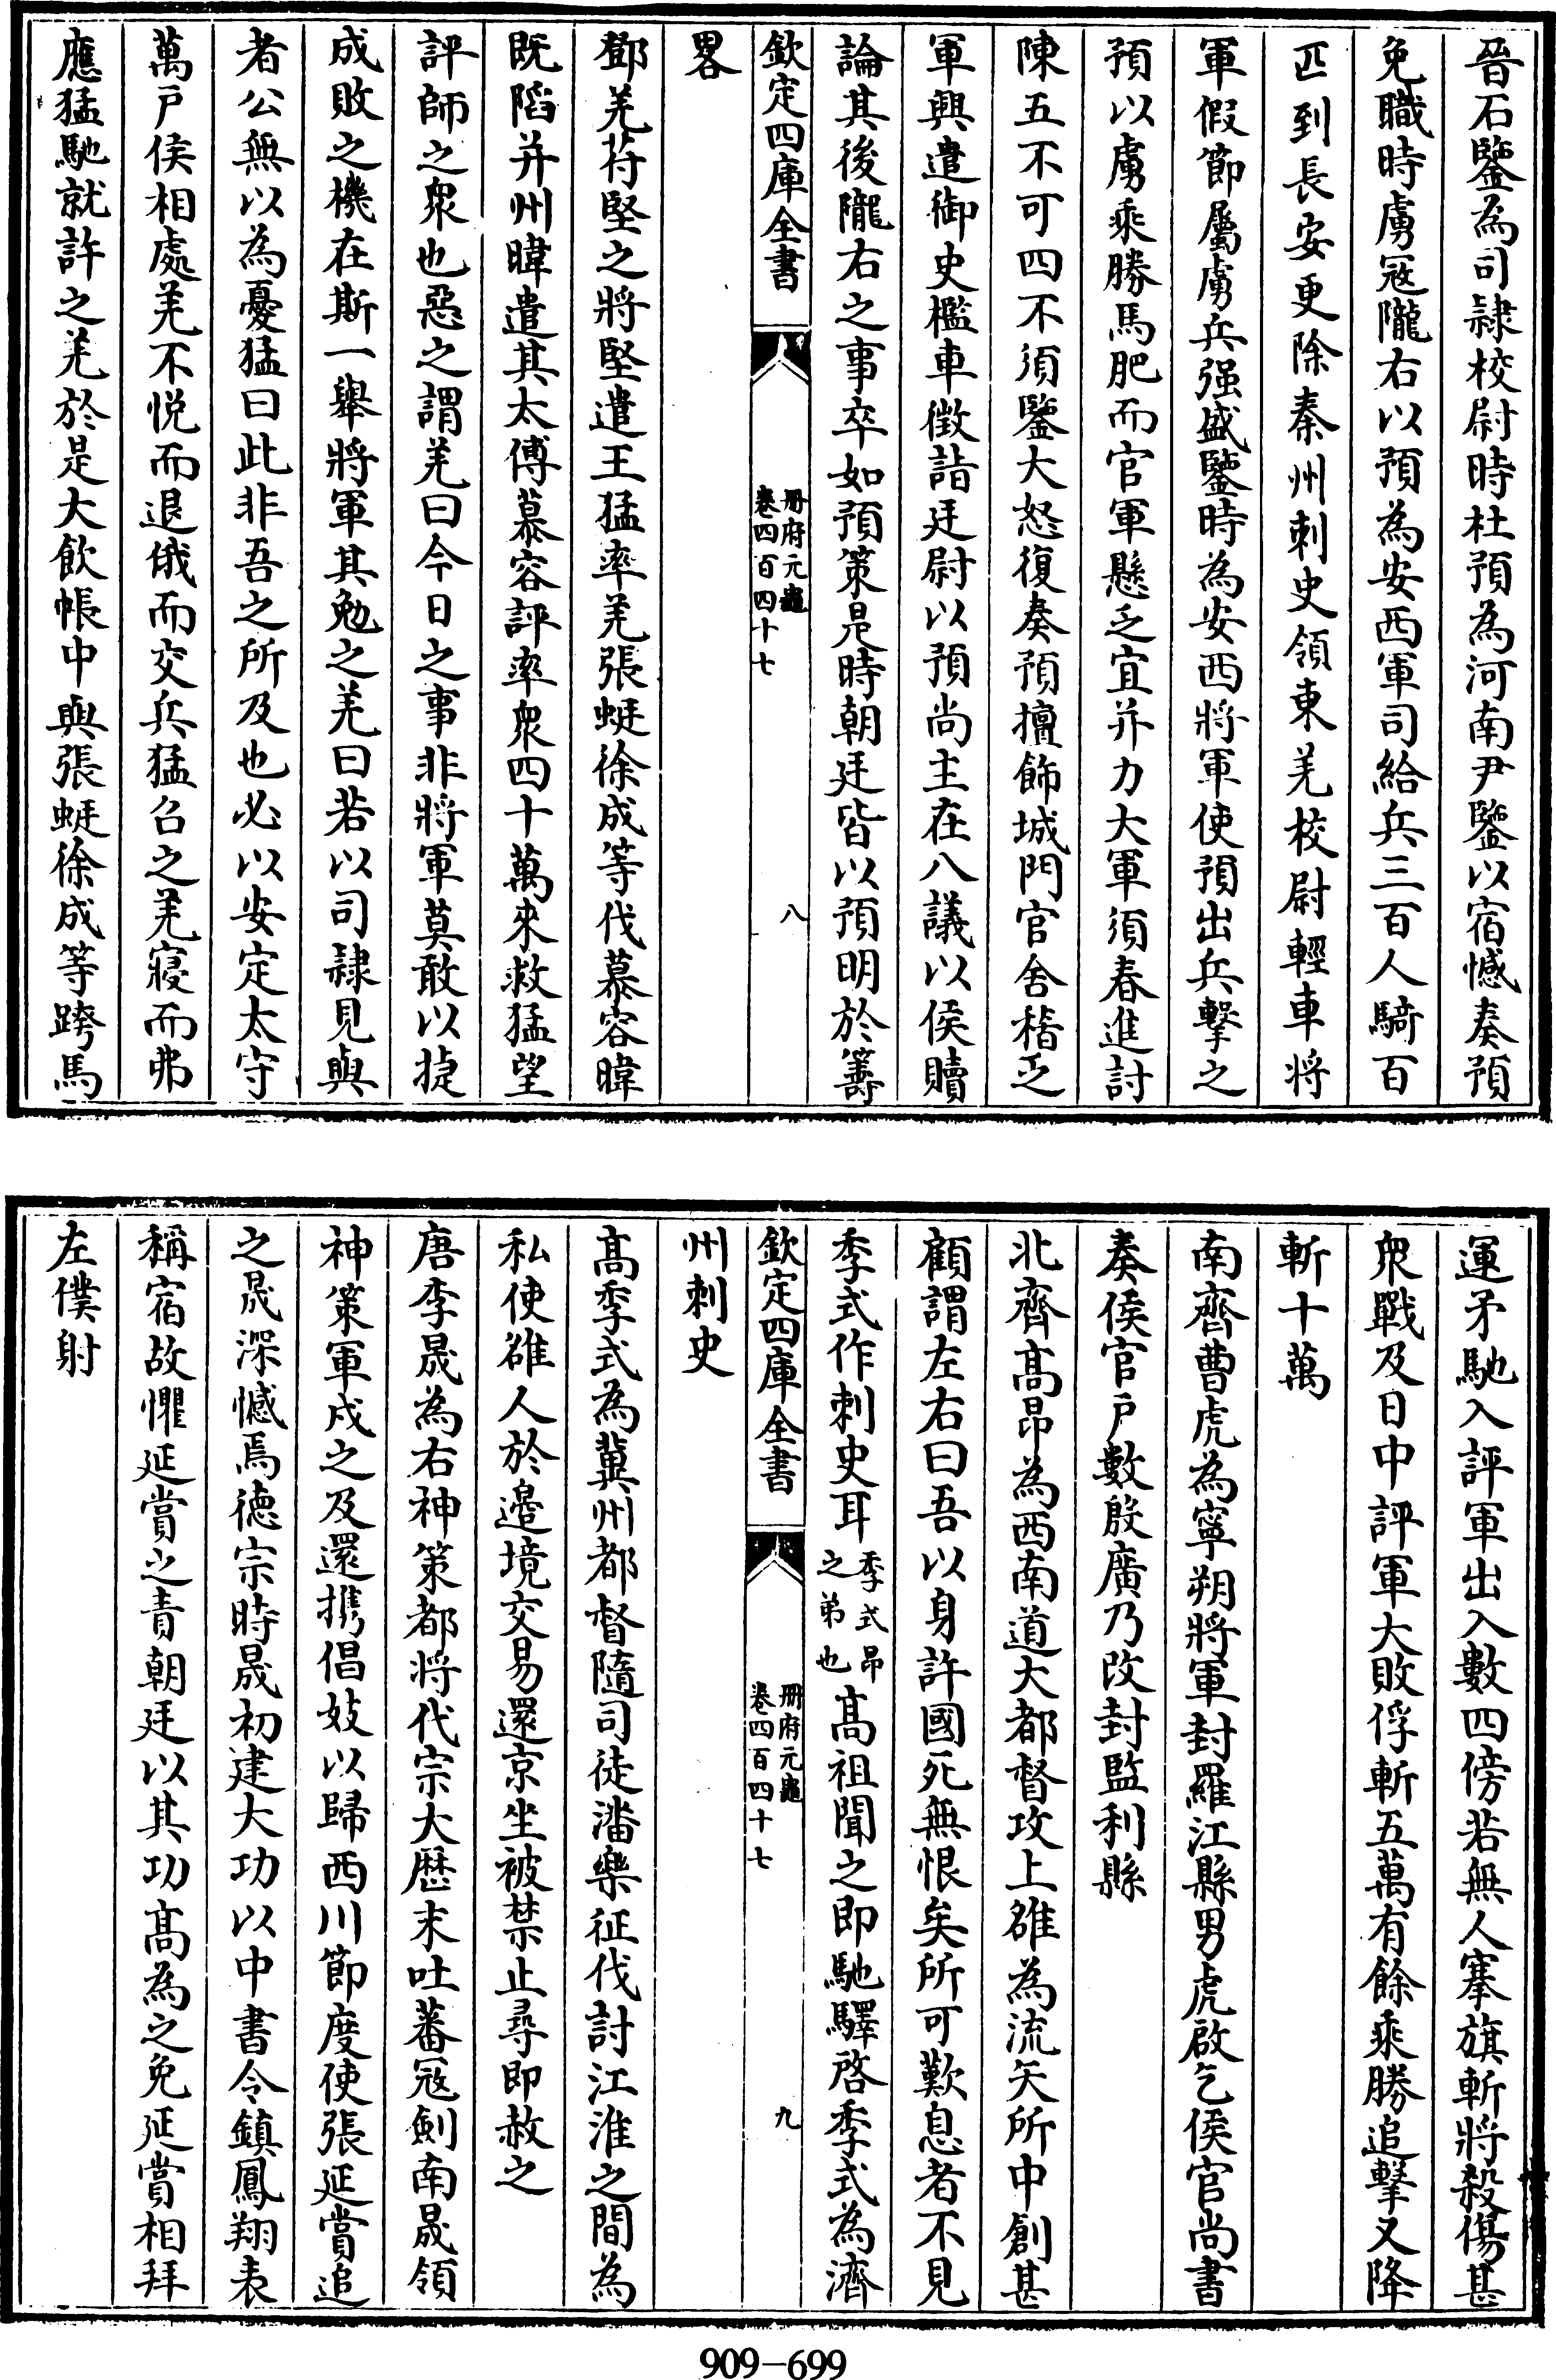 晉石鑒為司𨽻校尉時杜預為河南尹鑒以宿憾奏預
免職時虜冦隴右以預為安西軍司給兵三百人騎百
匹到長安更除秦州刺史領東羌校尉輕車将
軍假節屬虜兵强盛鑒時為安西將軍使預出兵擊之
預以虜乘勝馬肥而官軍懸乏宜并力大軍須春進討
陳五不可四不須鑒大怒復奏預擅飾城門官舍稽乏
軍興遣御史檻車徵詣廷尉以預尚主在八議以侯贖
論其後隴右之事卒如預策是時朝廷皆以預明於籌
欽定四庫全書
冊府元龜
卷四百四十七
八
畧
鄧羌苻堅之將堅遣王猛率羌張蚝徐成等伐慕容暐
既䧟并州暐遣其太傅慕容評率衆四十萬來救猛望
評師之衆也惡之謂羌曰今日之事非將軍莫敢以㨗
成敗之機在斯一舉將軍其勉之羌曰若以司隷見與
者公無以為憂猛曰此非吾之所及也必以安定太守
萬戸侯相處羌不悦而退俄而交兵猛召之羌寢而弗
應猛馳就許之羌於是大飲帳中與張蚝徐成等跨馬
運矛馳入評軍出入數四傍若無人搴旗斬將殺傷甚
衆戰及日中評軍大敗俘斬五萬有餘乘勝追擊又降
斬十萬
南齊曹虎為寧朔將軍封羅江縣男虎啟乞侯官尚書
奏侯官戸數殷廣乃改封監利縣
北齊髙昂為西南道大都督攻上雒為流矢所中創甚
顧謂左右曰吾以身許國死無恨矣所可歎息者不見
季式作刺史耳季式昂之弟也髙祖聞之即馳驛啓季式為濟
欽定四庫全書
冊府元龜
卷四百四十七
九
州刺史
髙季式為冀州都督隨司徒潘樂征伐討江淮之間為
私使雒人於邉境交易還京坐被禁止尋即赦之
唐李晟為右神策都将代宗大厯末吐蕃冦劍南晟領
神策軍戍之及還携倡妓以歸西川節度使張延賞追
之晟深憾焉徳宗時晟初建大功以中書令鎮鳳翔表
稱宿故懼延賞之青朝廷以其功髙為之免延賞相拜
左僕射
909-699